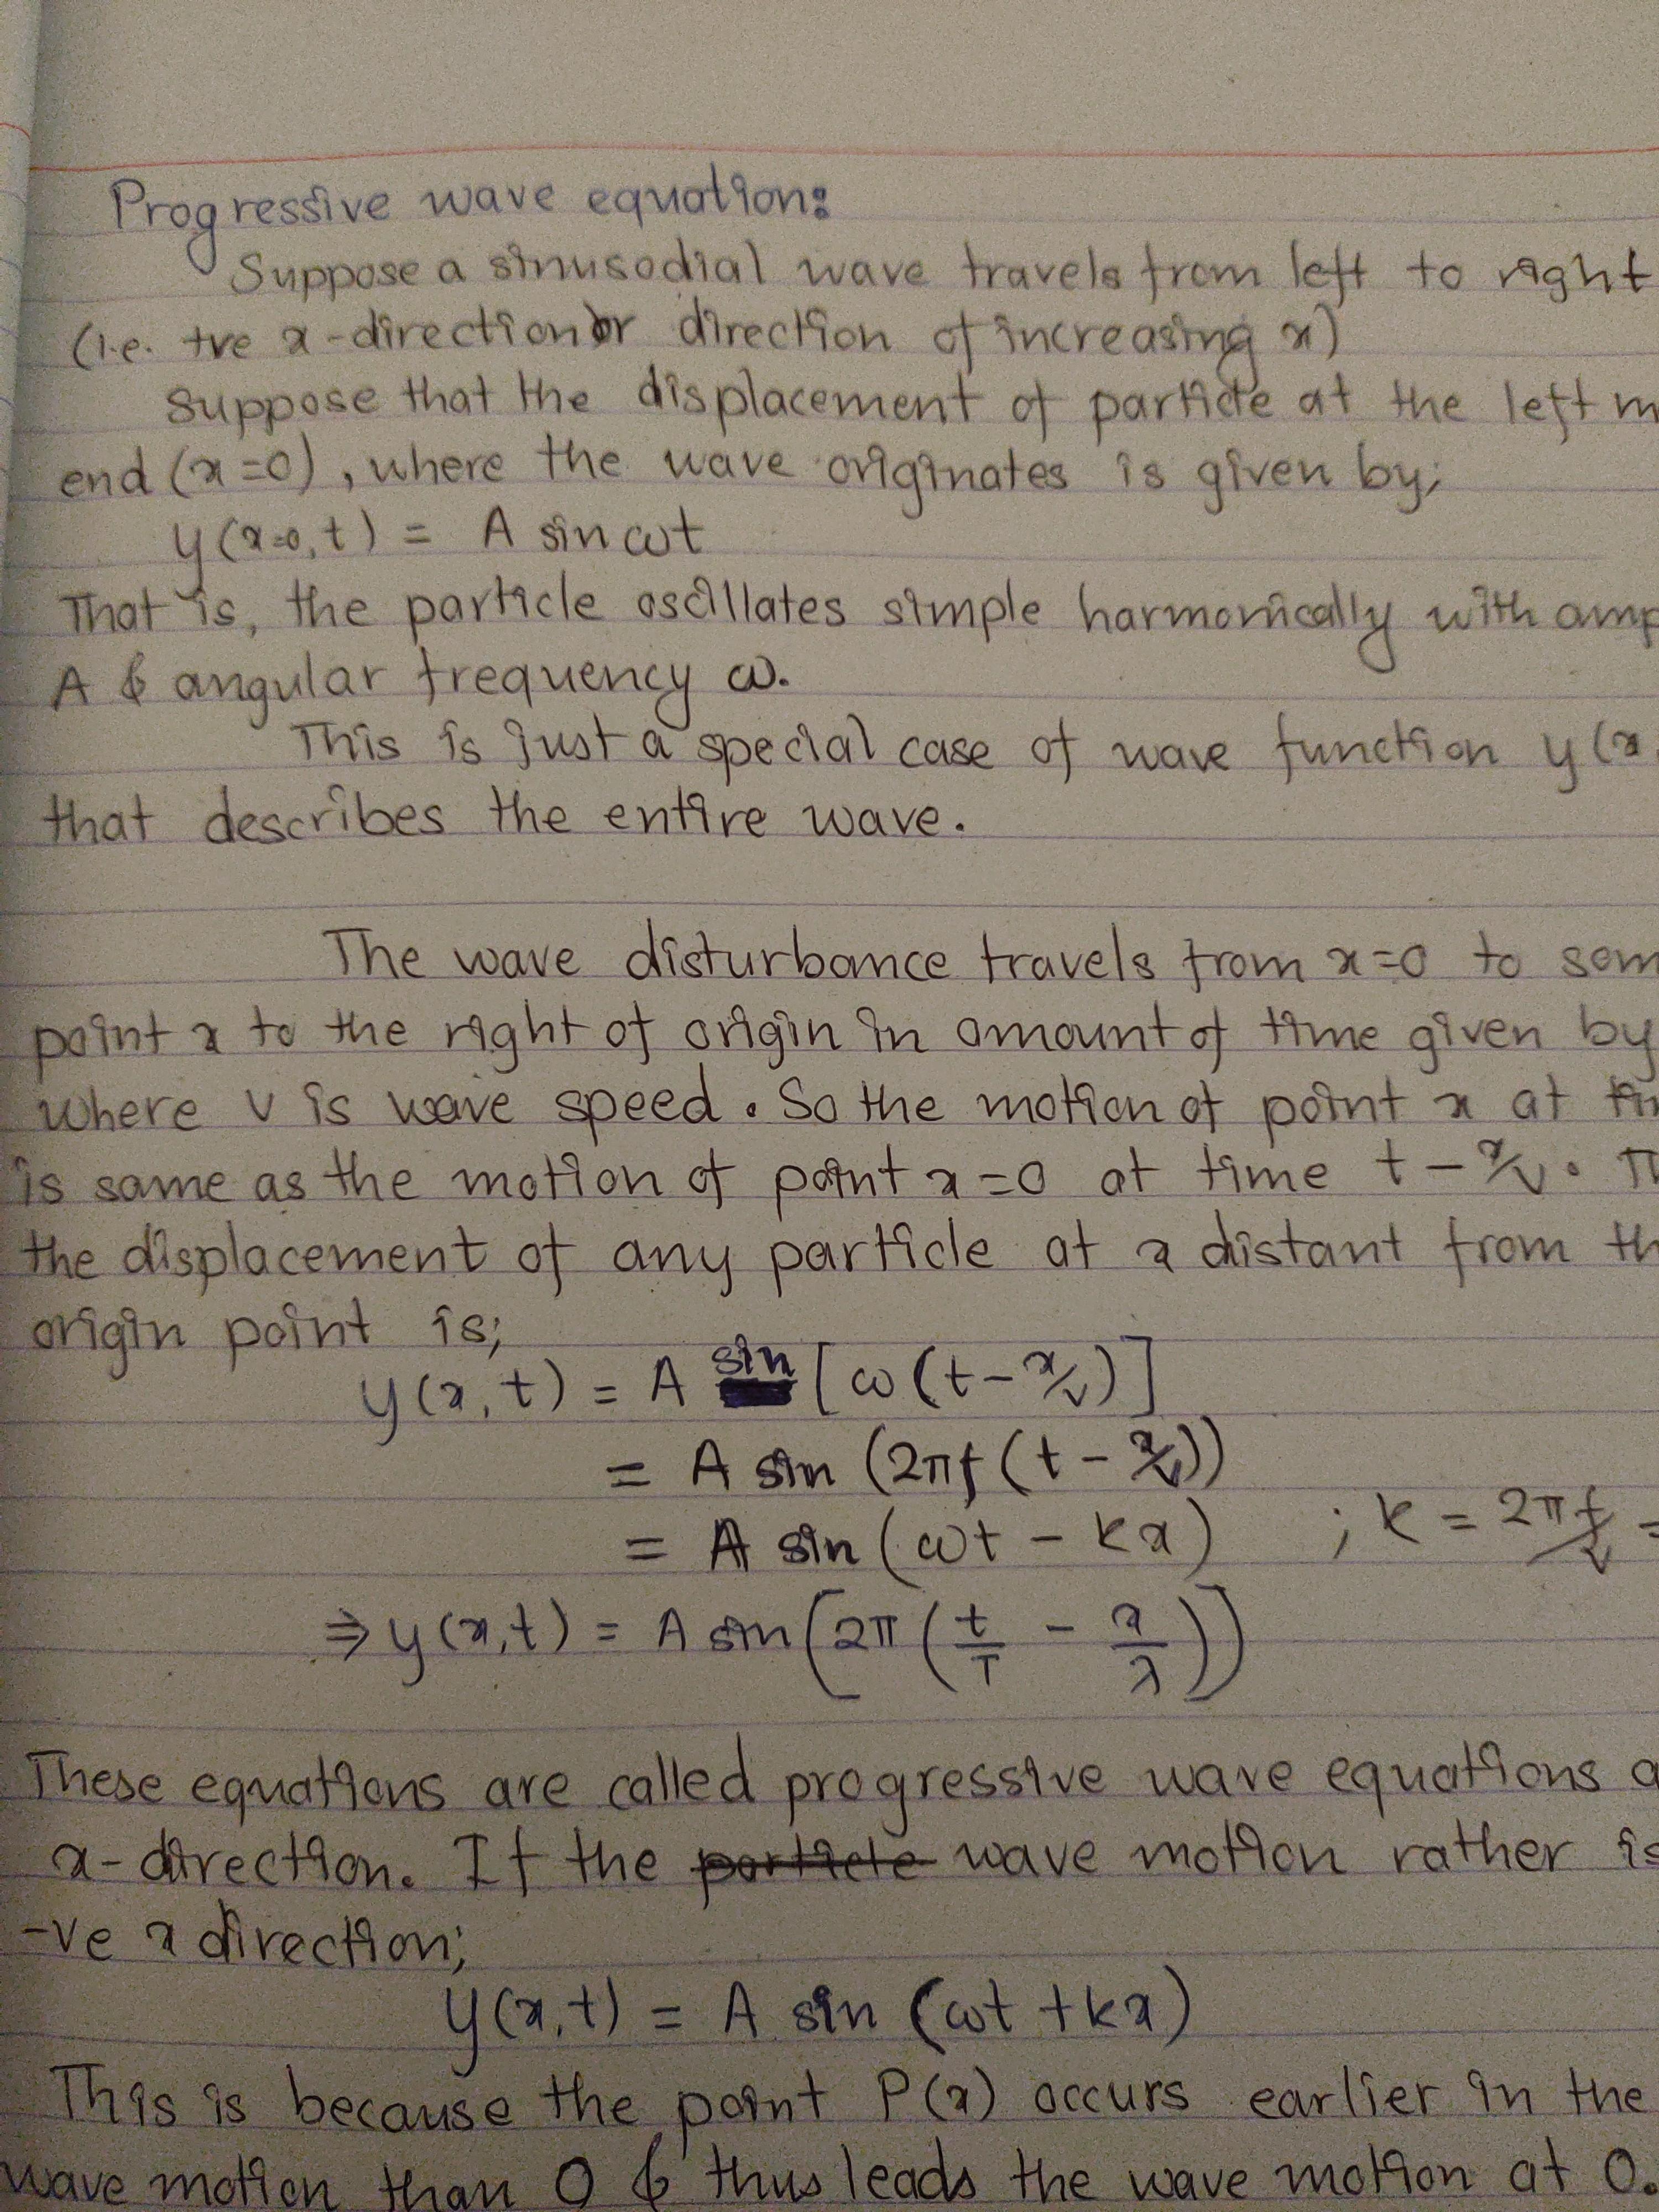 Progressive wave equation:
Suppose a sinusodial wave travels from left to right
(i.e. +ve x-direction or direction of increasing x)
suppose that the displacement of particle at the left m
end (x=0), where the wave originates is given by;
y(x=0,t) = A sin ωt
That is, the particle oscillates simple harmonically with amp
A & angular frequency ω.
This is just a special case of wave function y(x,
that describes the entire wave.
The wave disturbance travels from x=0 to som
point x to the right of origin in amount of time given by
where v is wave speed. So the motion of point x at
is same as the motion of point x=0 at time t - x/v.
the displacement of any particle at x distant from th
origin point is;
y(x,t) = A sin [ω(t-x/v)]
= A sin (2πf(t - x/v))
= A sin (ωt - kx) ; k = 2πf/v =
⇒ y(x,t) = A sin(2π(t/T - x/λ))
These equations are called progressive wave equations
x-direction. If the particle wave motion rather is
-ve x direction;
y(x,t) = A sin (ωt + kx)
This is because the point P(x) occurs earlier in the
wave motion than O & thus leads the wave motion at O.